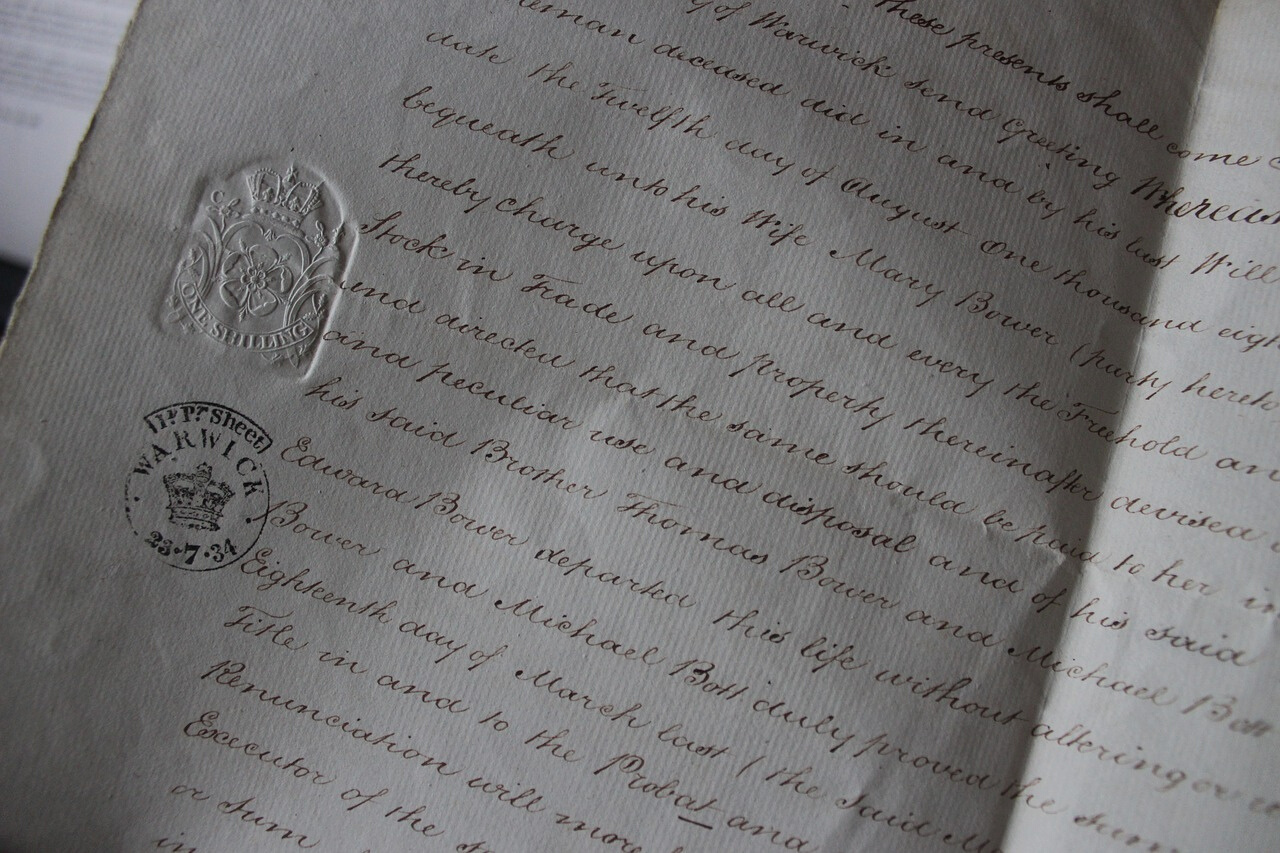 These presents shall come
of Warwick send Greeting Whereas
deceased did in and by his last Will
date the Twelfth day of August One thousand eigh
bequeath unto his Wife Mary Bower (party hereto
thereby charge upon all and every the Freehold an
Stock in Trade and property thereinafter devised
and directed that the same should be paid to her in
and peculiar use and disposal and of his said
his said Brother Thomas Bower and Michael Bott
Edward Bower departed this life without altering or
Bower and Michael Bott duly proved the same
Eighteenth day of March last (the said
Title in and to the Probat and
Renunciation will more
Executor of the
or sum
in
ONE SHILLING
Pr. Sheet
WARWICK
23·7·34